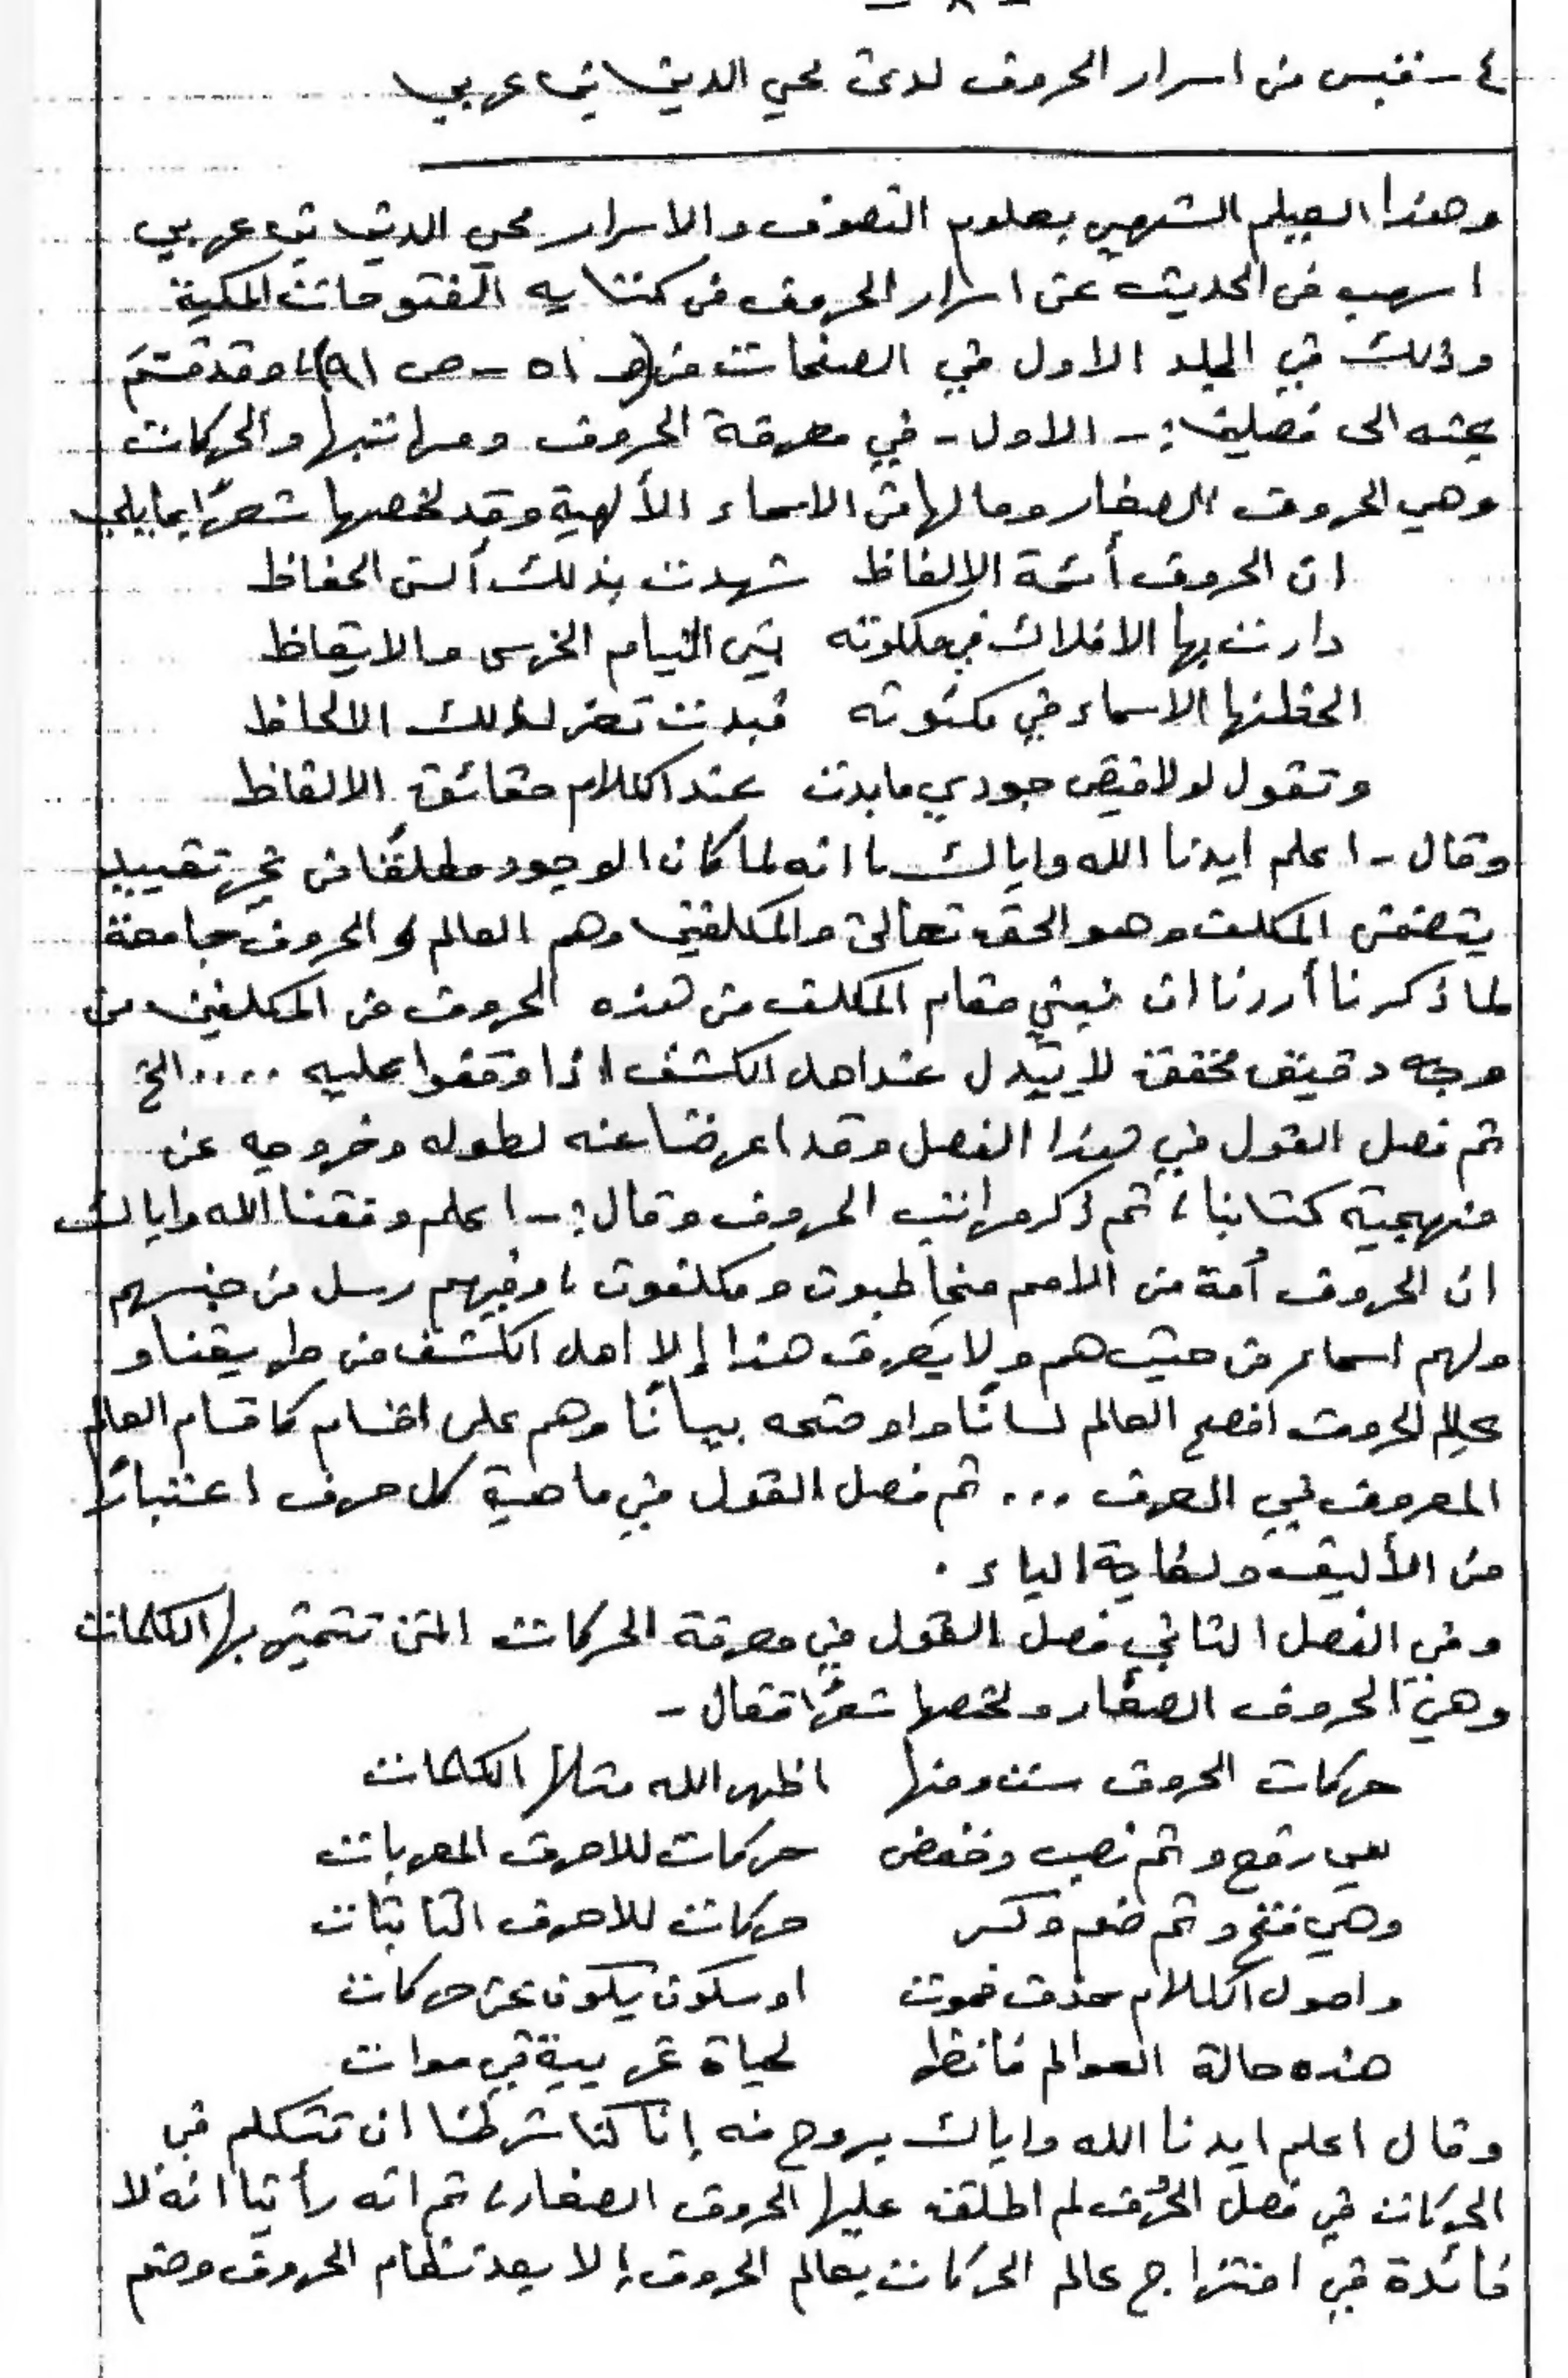 - ٨ -
٤ - قبس من اسرار الحروف لدى محي الدين بن عربي
وهذا العيلم الشهير بعلوم التصوف والاسرار محي الدين بن عربي
اسهب في الحديث عن اسرار الحروف في كتابه الفتوحات المكية
وذلك في المجلد الاول في الصفحات من (ص ٥١ - ص ٩١)، وقد قسّم
بحثه الى فصلين :- الاول - في معرفة الحروف ومراتبها والحركات
وهي الحروف الصغار وما لها من الاسماء الألهية وقد لخصها شعرًا بمايلي
ان الحروف أئمة الالفاظ شهدت بذلك ألسن الحفاظ
دارت بها الافلاك في ملكوته بين النيام الخرس والايقاظ
الحظنها الاسماء في مكنونه فبدت تعز لذلك الالحاظ
وتقول لولا فيض جودي مابدت عند الكلام حقائق الالفاظ
وقال - اعلم ايدنا الله واياك، انه لما كان الوجود مطلقًا من غير تقييد
يتضمن المكلف وهو الحق تعالى والمكلفين وهم العالم والحروف جامعة
لما ذكرنا أردنا ان نبين مقام المكلف من هذه الحروف من المكلفين من
وجه دقيق محقق لا يتبدل عند اهل الكشف اذا وقفوا عليه ..... الخ
ثم فصل القول في هذا الفصل وقد اعرضنا عنه لطوله وخروجه عن
منهجية كتابنا، ثم ذكر مراتب الحروف وقال :- اعلم وفقنا الله واياك
ان الحروف أمة من الامم مخاطبون ومكلفون، وفيهم رسل من جنسهم
ولهم اسماء من حيث هم ولا يعرف هذا إلا اهل الكشف من طريقنا و
عالم الحروف افصح العالم لسانًا واوضحه بيانًا وهم على اقسام كاقسام العالم
المعروف في العرف ... ثم فصل القول في ماهية كل حرف اعتبارًا
من الأليف ولغاية الياء .
وفي الفصل الثاني فصل القول في معرفة الحركات التي تتميز بها الكلمات
وهي الحروف الصغار ولخصها شعرًا فقال -
حركات الحروف ست ومنها اظهر الله مثلها الكلمات
هي رفع وثم نصب وخفض حركات للاحرف المعربات
وهي فتح وثم ضم وكسر حركات للاحرف الثابتات
واصول الكلام حذف فموت او سكون يكون عن حركات
هذه حالة العوالم فانظر لحياة غريبة في موات
وقال اعلم ايدنا الله واياك بروح منه إنا كنا شرطنا ان نتكلم في
الحركات في فصل الحروف لم اطلق عليها الحروف الصغار، ثم انه رأينا انه لا
فائدة في امتزاج عالم الحركات بعالم الحروف إلا بعد نظام الحروف وضم